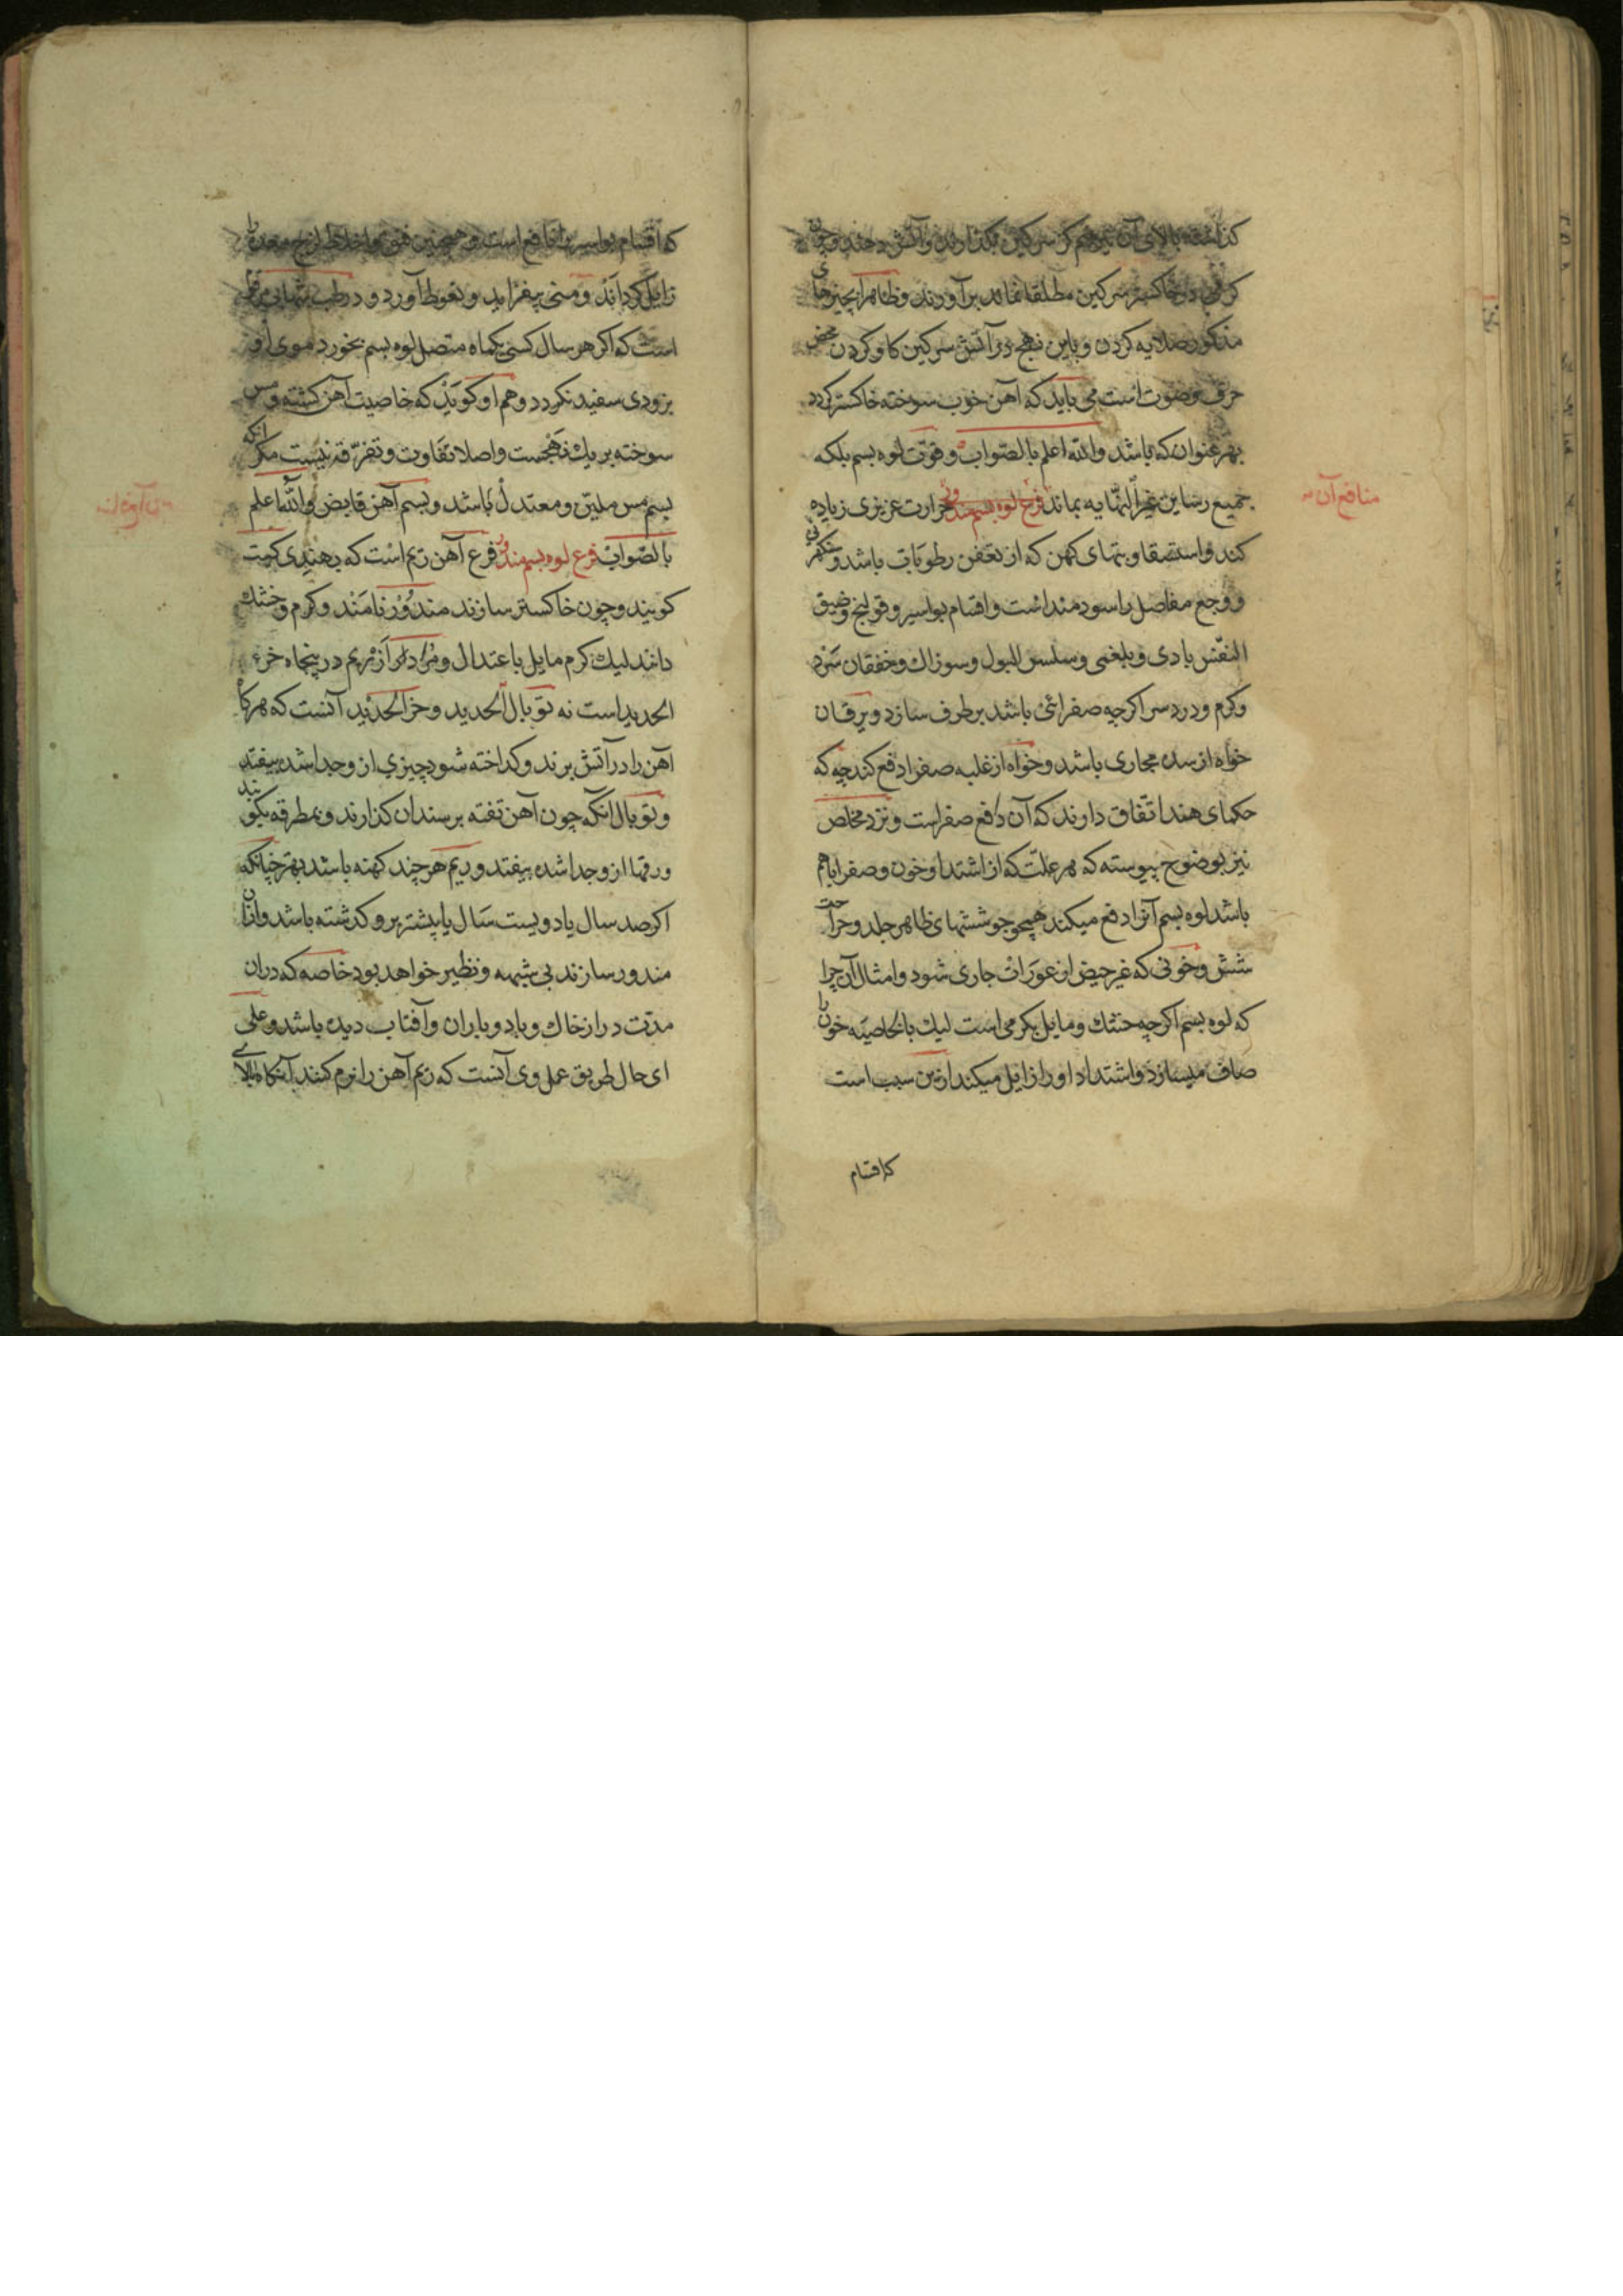 کذاشته بالای آن نیز هم کز سرکین بکذارند و آتش دهند و چون
کرمی در خاکستر سرکین مطلقا نماند برآورند و ظاهرا بچیزهای
مذکور صلایه کردن و باین نهج در آتش سرکین کاو کردن محض
حرف و صوت است می باید که آهن خوب سوخته خاکستر کردد
بهر عنوان که باشد والله اعلم بالصواب وقوت لوه بسم بلکه
جمیع رساین غیر النهایه بماند حرارت غریزی زیاده
منافع آن
کند و استسقا و تبهای کهن که از تعفن رطوبات باشد و
و وجع مفاصل را سودمند است و اقسام بواسیر و قولنج و ضیق
النفس بادی و بلغمی و سلس البول و سوزاك و خفقان سرد
و کرم و درد سر اکرچه صفرائی باشد برطرف سازد و یرقان
خواه از سده مجاری باشد و خواه از غلبه صفرا دفع کند چه که
حکمای هند اتفاق دارند که آن دافع صفراست و نزد مخلص
نیز بوضوح پیوسته که هر علت که از اشتداد خون و صفرا باهم
باشد لوه بسم آنرا دفع میکند همچو جوششهای ظاهر جلد و جراحت
شش و خونی که غیر حیض از عورات جاری شود و امثال آن چرا
که لوه بسم اکرچه خشك و مایل بکرمی است لیك بالخاصیه خون را
صاف میسازد و اشتداد او را زایل میکند ازین سبب است
که اقسام
که اقسام بواسیر را نافع است و همچنین اخلاط لزج معده را
زایل کرداند و منی بیفزاید و نعوظ آورد و در طب شهابی مرقوم
است که اکر هر سال کسی یکماه متصل لوه بسم بخورد موی او
بزودی سفید نکردد و هم او کوید که خاصیت آهن کشته و مس
سوخته بر یك نهجست و اصلا تفاوت و تفرقه نیست مکر انکه
بسم مس ملین و معتدل باشد و بسم آهن قابض والله اعلم
بالصواب فرع لوه بسم مندور فرع آهن ریم است که بهندی کیت
کویند و چون خاکستر سازند مندور نامند و کرم و خشك
دانند لیك کرم مایل باعتدال و مراد از ریم درینجاه خرء
الحدید است نه توبال الحدید و خرء الحدید آنست که هرکاه
آهن را در آتش برند و کداخته شود چیزی از و جدا شده بیفتد
و توبال انکه چون آهن تفته بر سندان کذارند و بمطرقه بکوبند
ورقها از و جدا شده بیفتد و ریم هر چند کهنه باشد بهتر چنانکه
اکر صد سال یا دویست سال یا بیشتر برو کذشته باشد و ازان
مندور سازند بی شبهه و نظیر خواهد بود خاصه که دران
مدت دراز خاك و باد و باران و آفتاب دیده باشد و علی
ای حال طریق عمل وی آنست که ریم آهن را نرم کنند آنکاه بالای